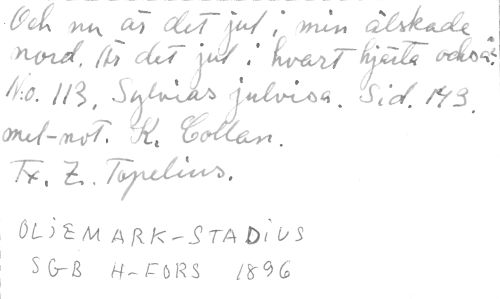 Och nu är det jul i min älskade
nord. Är det jul i hvart hjärta också?
N:o. 113, Sylvias julvisa. Sid. 143.
mel-not. K. Collan.
Tx. Z. Topelius.
OLJEMARK-STADIUS
SGB H-FORS 1896